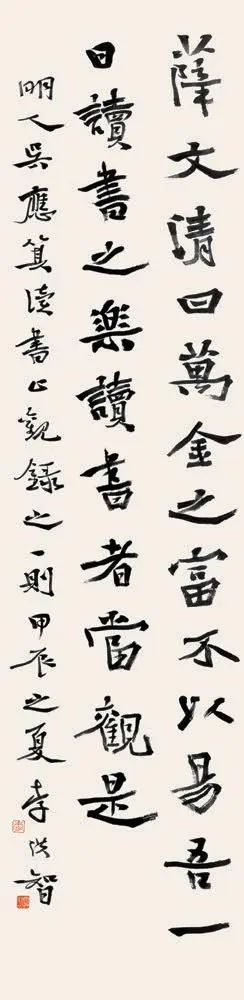 薛文清曰萬金之富不以易吾一
日讀書之樂讀書者當觀是
明人吴應箕读書止觀録之一則甲辰之夏李洪智